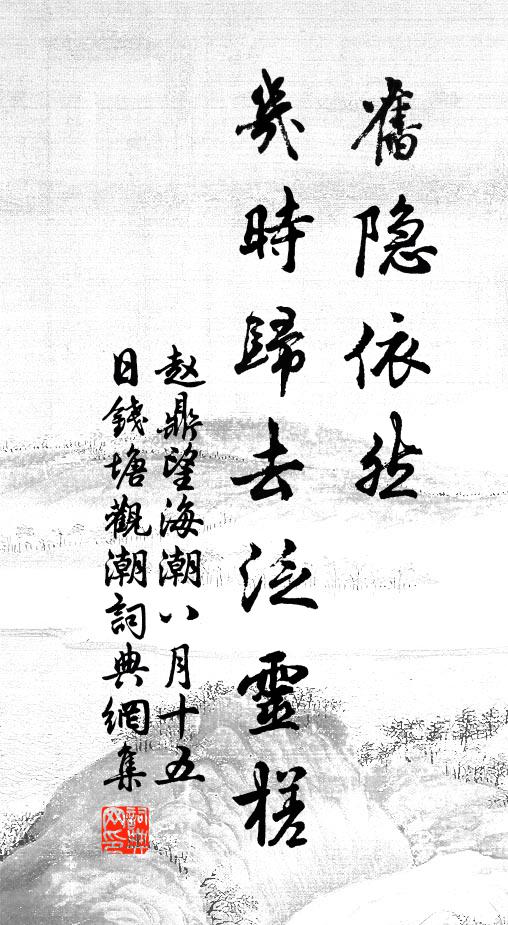 舊隐依然
幾時歸去泛靈槎
赵鼎望海潮八月十五
日錢塘觀潮詞典網集